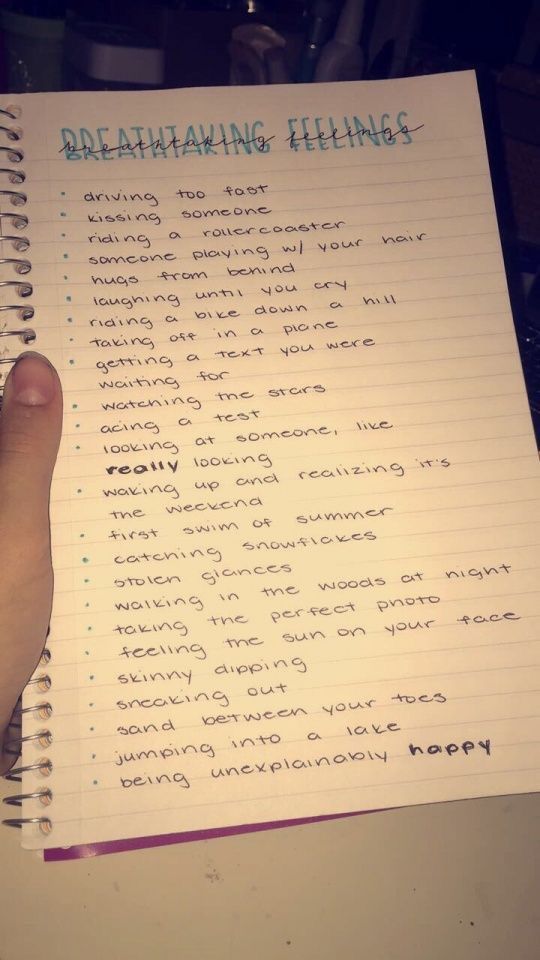 BREATHTAKING FEELINGS
breathtaking feelings
• driving too fast
• kissing someone
• riding a rollercoaster
• someone playing w/ your hair
• hugs from behind
• laughing until you cry
• riding a bike down a hill
• taking off in a plane
• getting a text you were
waiting for
• watching the stars
• acing a test
• looking at someone, like
really looking
• waking up and realizing it's
the weekend
• first swim of summer
• catching snowflakes
• stolen glances
• walking in the woods at night
• taking the perfect photo
• feeling the sun on your face
• skinny dipping
• sneaking out
• sand between your toes
• jumping into a lake
• being unexplainably happy